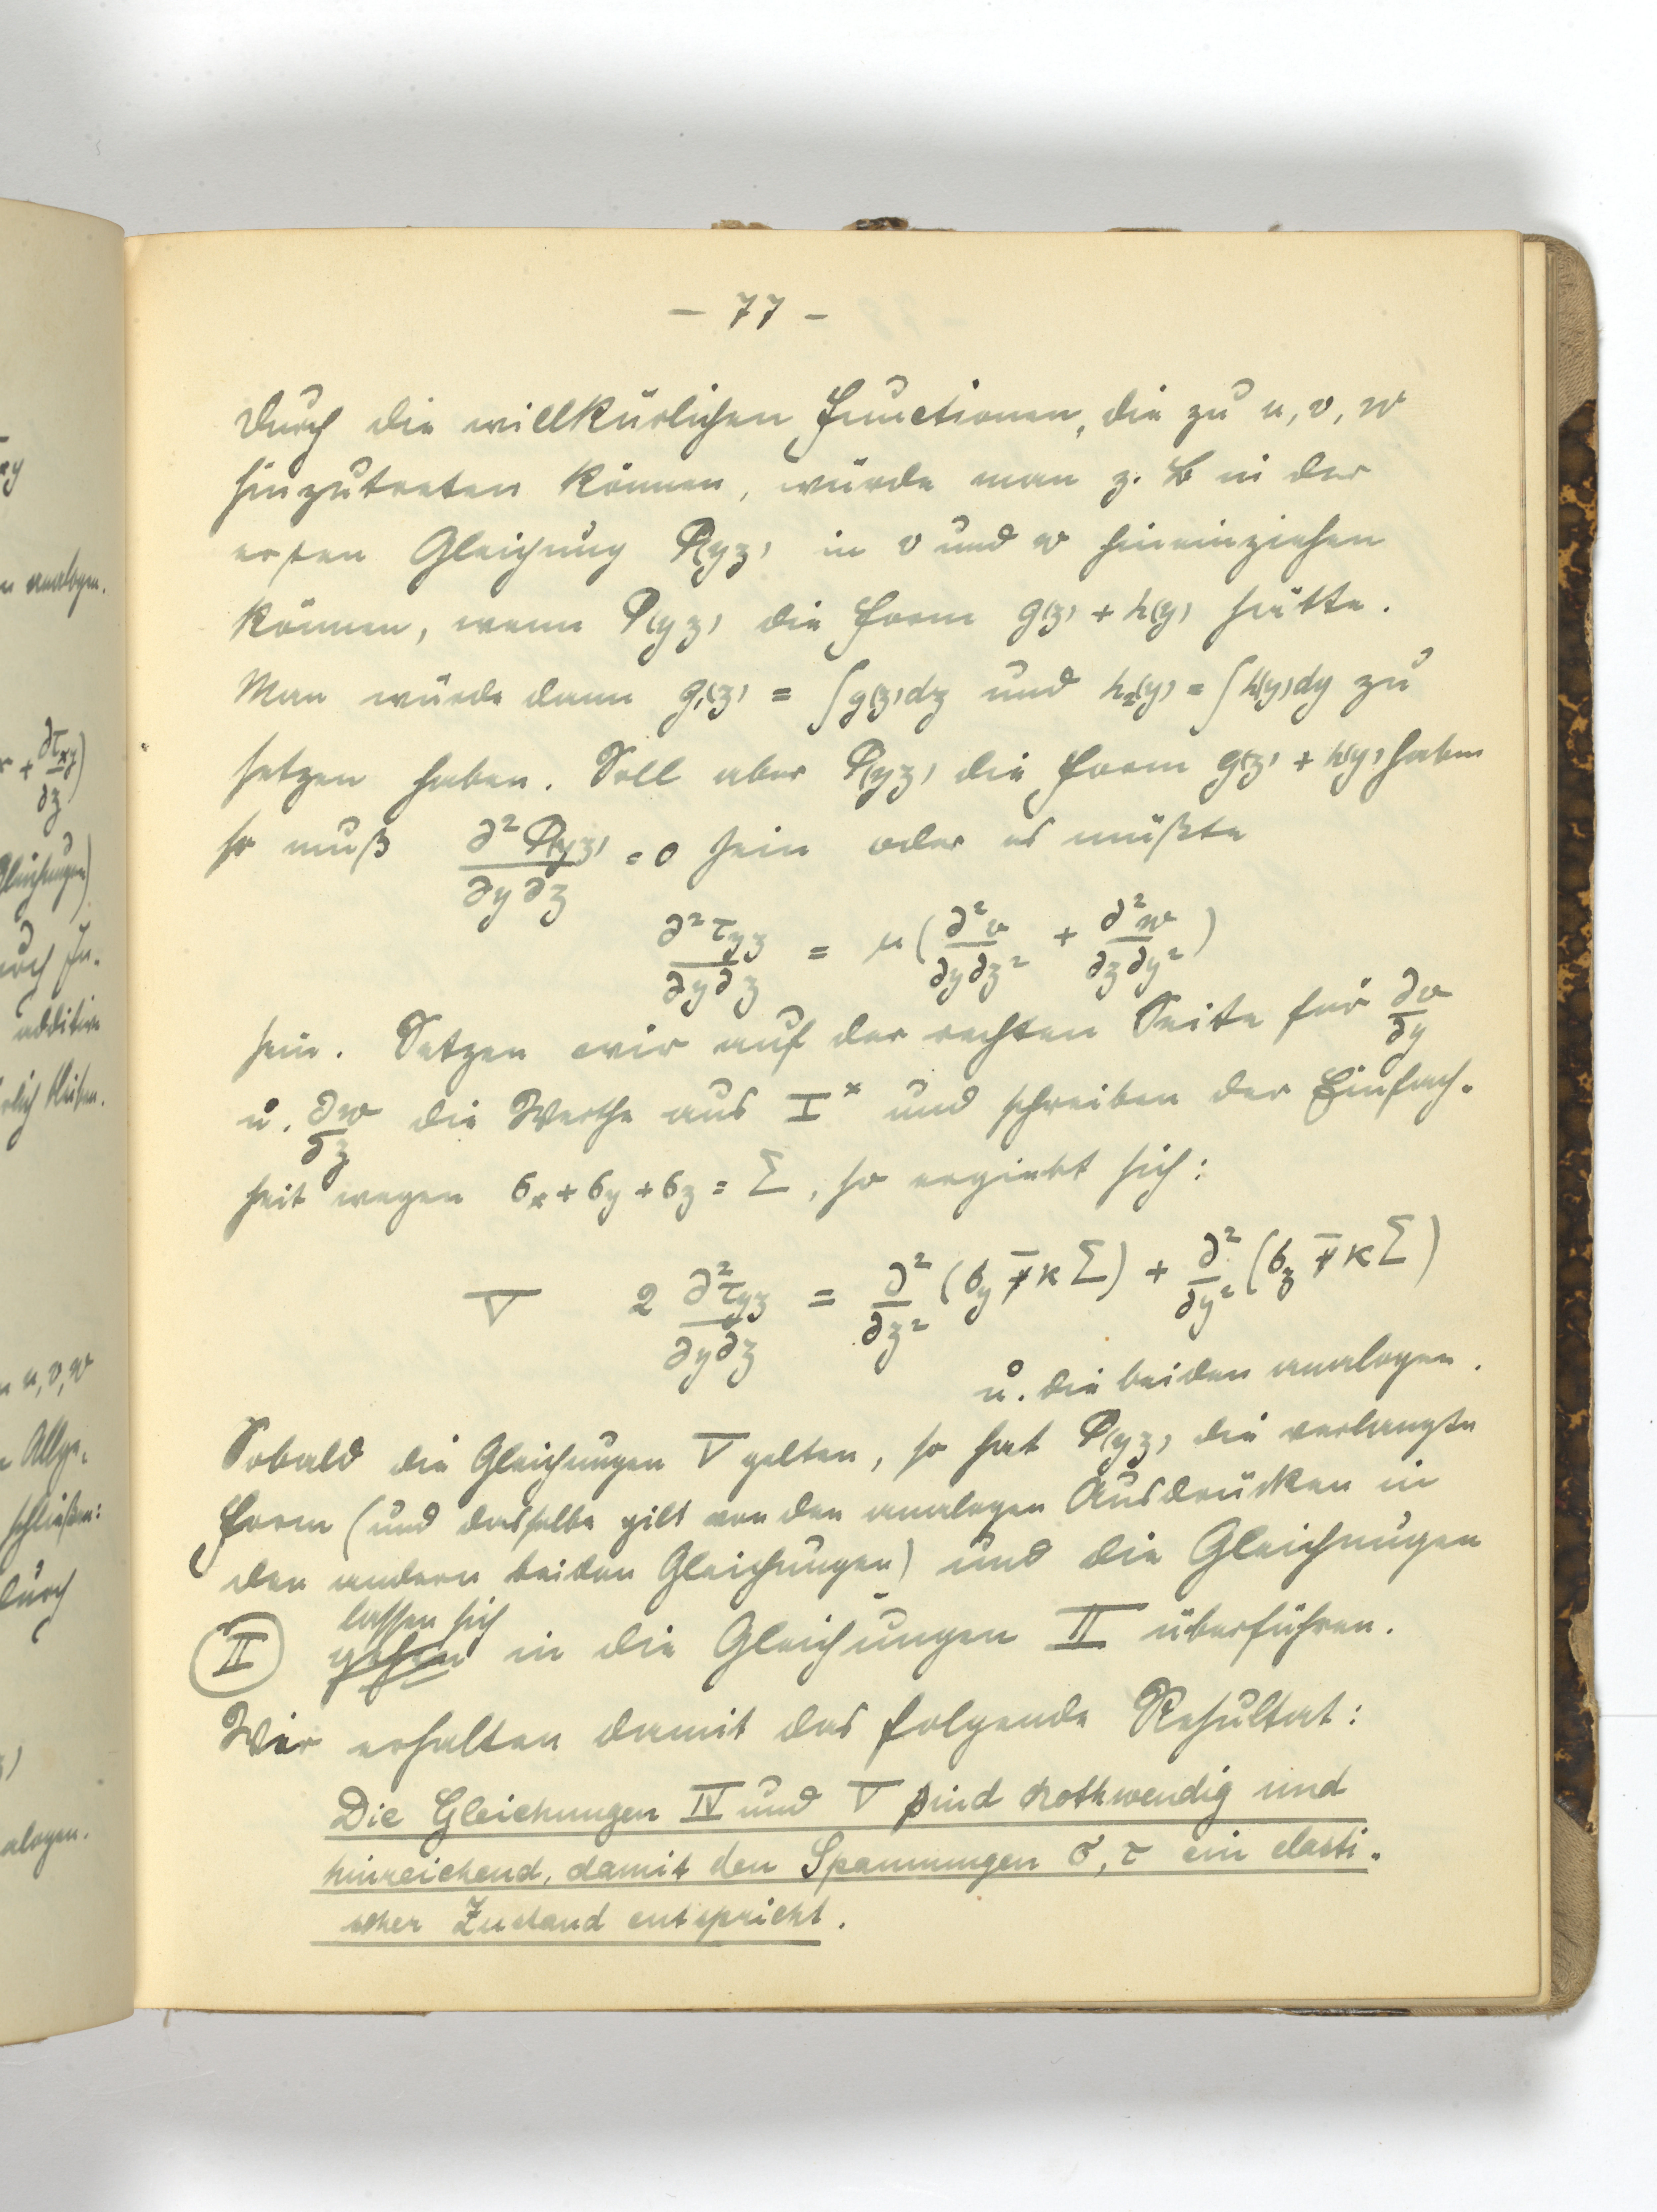 – 77 –
durch die willkürlichen Functionen, die zu u, v, w
hinzutreten können, würde man z. B in der
ersten Gleichung Φ(yz) in v und w hineinziehen
können, wenn Φ(yz) die Form g(z) + h(y) hätte.
Man würde dann g₁(z) = ∫g(z)dz und h₂(y) = ∫h(y)dy zu
setzen haben. Soll aber Φ(yz) die Form g(z) + h(y) haben
so muß ∂²Φ(yz)/∂y∂z = 0 sein oder es müßte
∂²τyz/∂y∂z = μ(∂²v/∂y∂z² + ∂²w/∂z∂y²)
sein. Setzen wir auf der rechten Seite für ∂v/∂y
u. ∂w/∂z die Werthe aus I* und schreiben der Einfach-
heit wegen σx + σy + σz = Σ, so ergiebt sich:
V 2 ∂²τyz/∂y∂z = ∂²/∂z² (σy – κΣ) + ∂²/∂y² (σz – κΣ)
u. die beiden analogen.
Sobald die Gleichungen V gelten, so hat Φ(yz) die verlangte
Form (und dasselbe gilt von den analogen Ausdrücken in
den andern beiden Gleichungen) und die Gleichungen
(II) lassen sich in die Gleichungen II überführen.
Wir erhalten damit das folgende Resultat:
Die Gleichungen IV und V sind nothwendig und
hinreichend, damit den Spannungen σ, τ ein elasti-
scher Zustand entspricht.